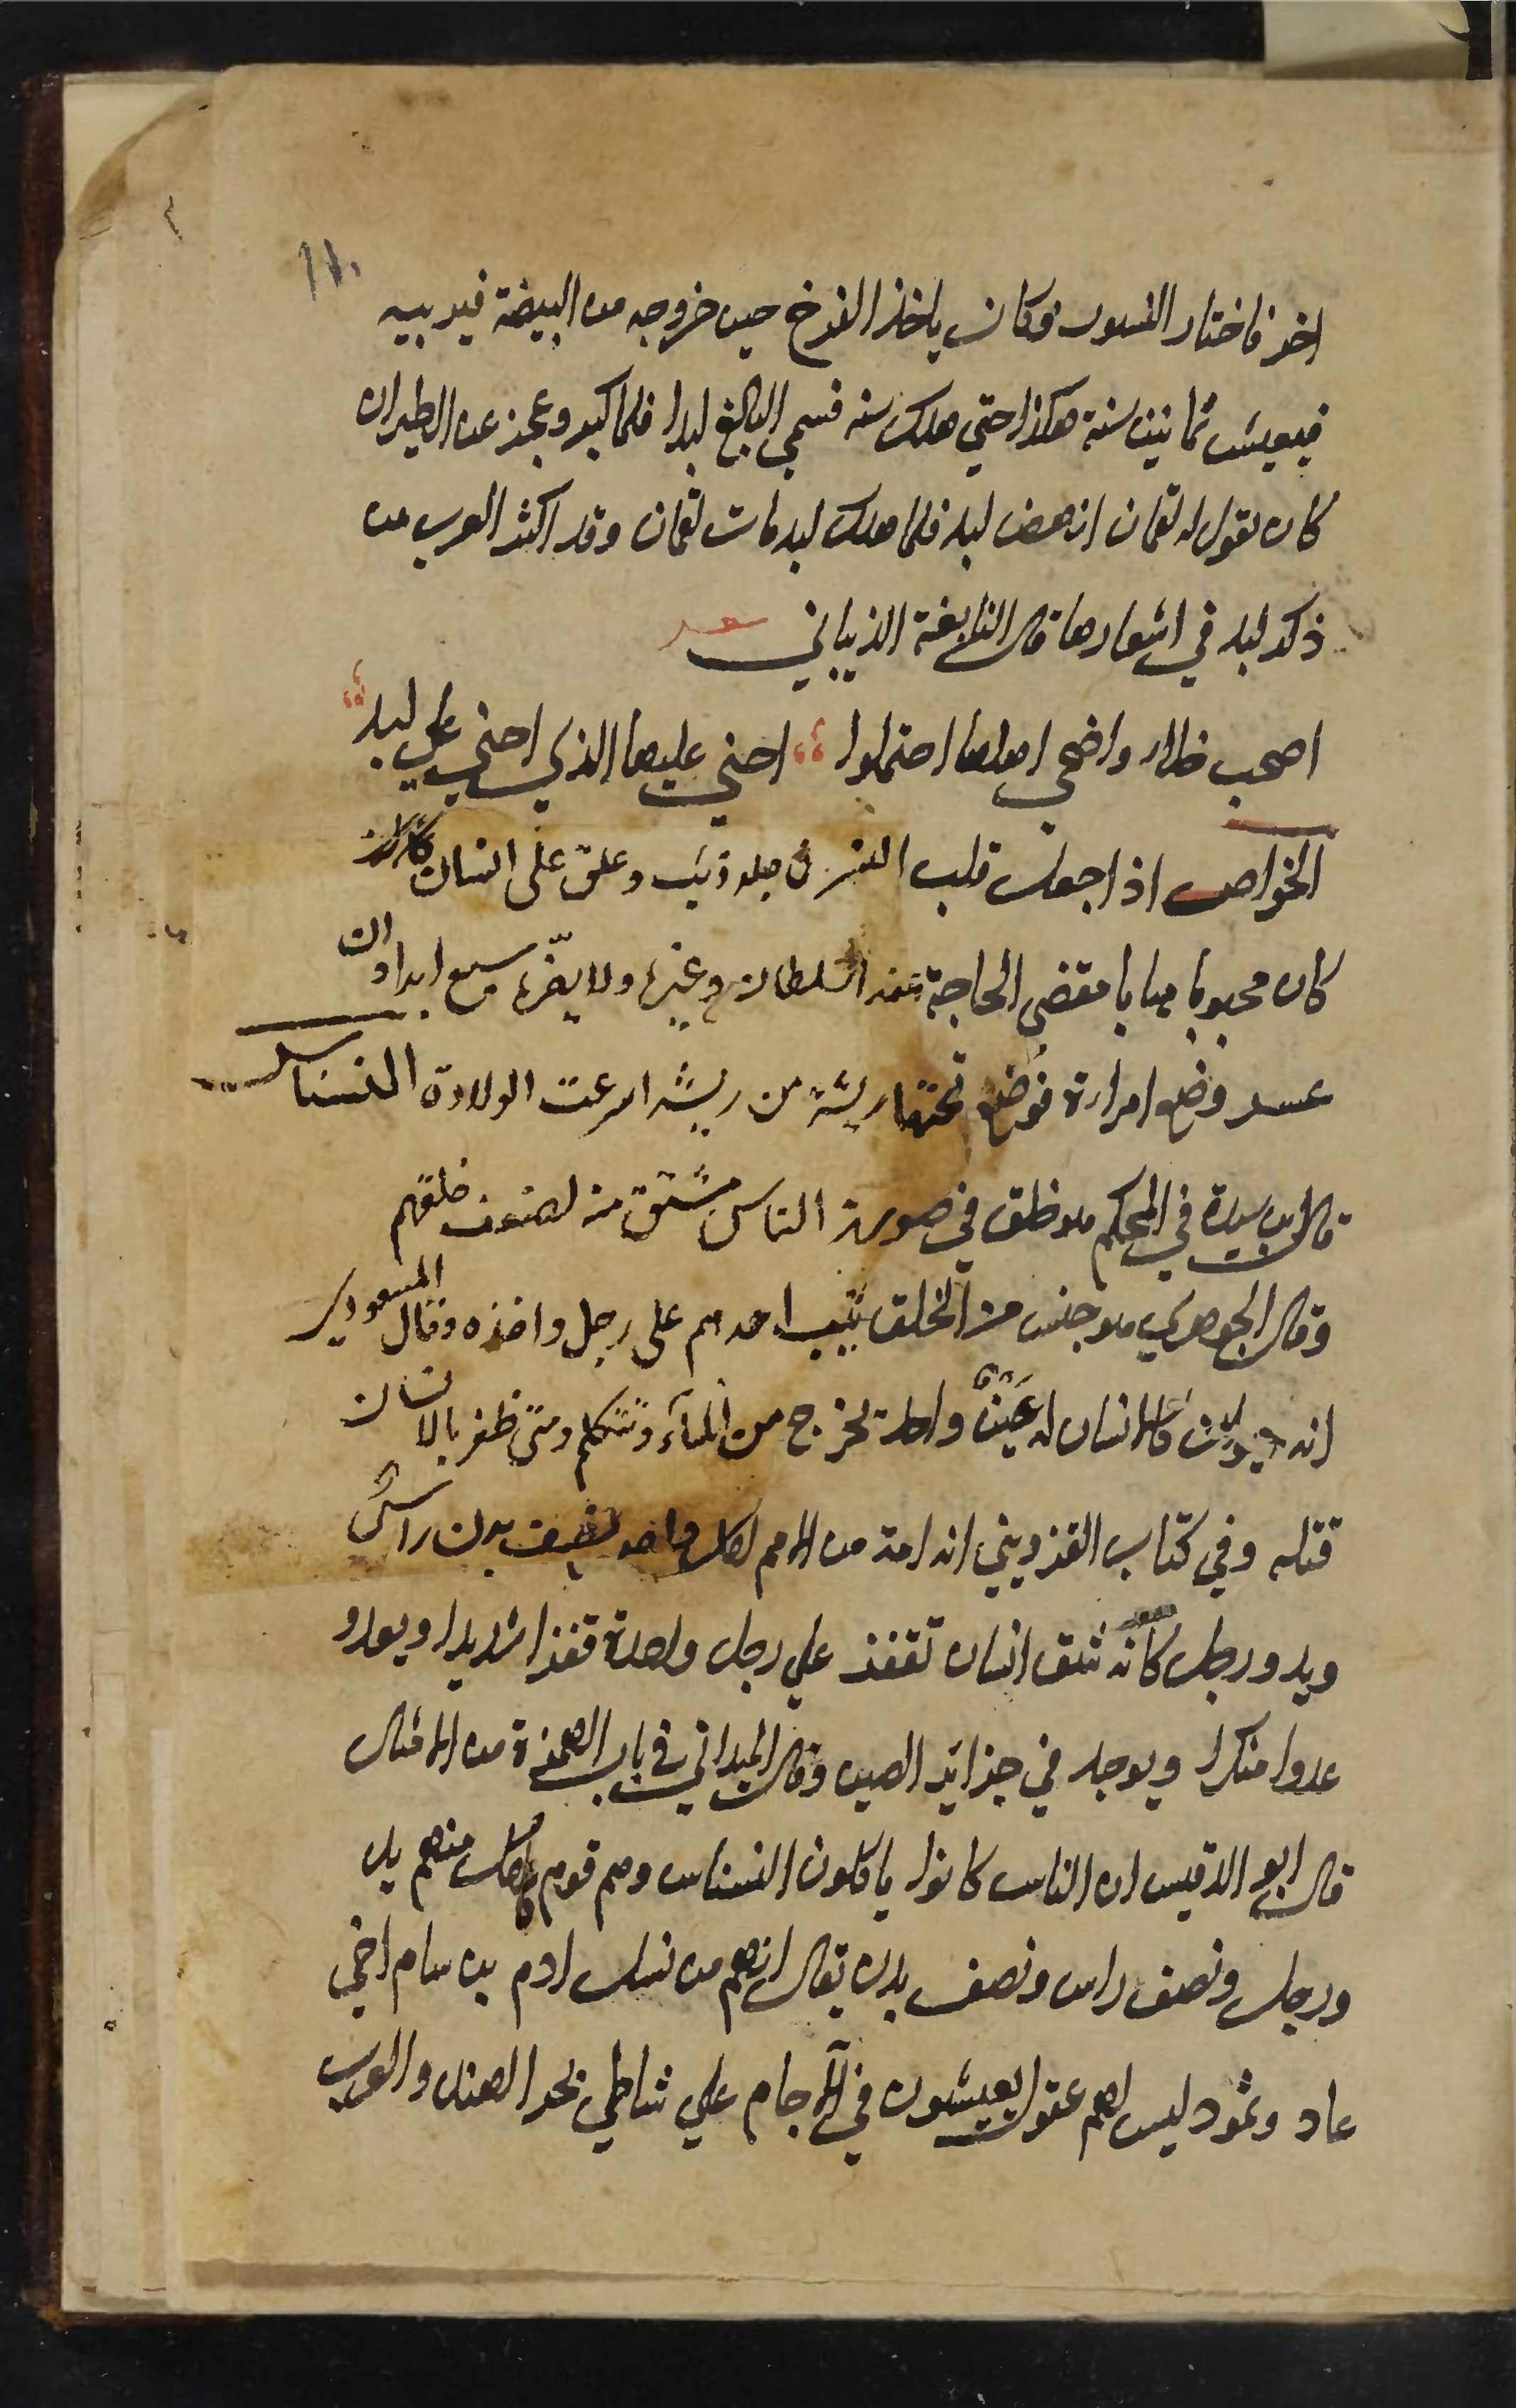 اخر فاختار النسور فكان ياخذ الفرخ حين خروجه من البيضة فيربيه
فيعيش ثمانين سنة هكذا حتي هلك سته فسمي البالغ لبدا فلما كبر وعجز عن الطيران
كان يقول له لقمان انهض لبد فلما هلك لبد مات لقمان وقد اكثر العرب من
ذكر لبد في اشعارها قال النابغة الذبياني
اضحت خلاء واضحي اهلها احتملوا اخني عليها الذي اخني علي لبد
الخواص اذا جعلت قلب النسر في جلد ذئب وعلق على انسان
كان محبوبا مهابا مقضي الحاجة عند السلطان وغيره ولا يضره سبع ابدا وان
عسر وضع امراءة فوضع تحتها ريشة من ريشه اسرعت الولادة النسناس
قال ابن سيدة في المحكم هو خلق في صورة الناس مشتق منه لضعف خلقهم
وقال الجوهري هو جنس من الخلق يثب احدهم على رجل واحده وقال المسعودي
انه حيوان كالانسان له عين واحدة تخرج من المآء وتتكلم ومتى ظفر بالانسان
قتله وفي كتاب القزويني انه امة من الامم لكل واحد نصف بدن راس
ويد ورجل كانه شق انسان تقفز علي رجل واحدة قفزا شديدا ويعدو
عدوا منكرا ويوجد في جزائر الصين وقال الميداني في باب الهمزة من الامثال
قال ابو الدقيس ان الناس كانوا ياكلون النسناس وهم قوم لكل منهم يد
ورجل ونصف راس ونصف بدن يقال انهم من نسل ادم بن سام اخي
عاد وثمود ليس لهم عقول يعيشون في الآجام علي شاطي بحر الهند والعرب